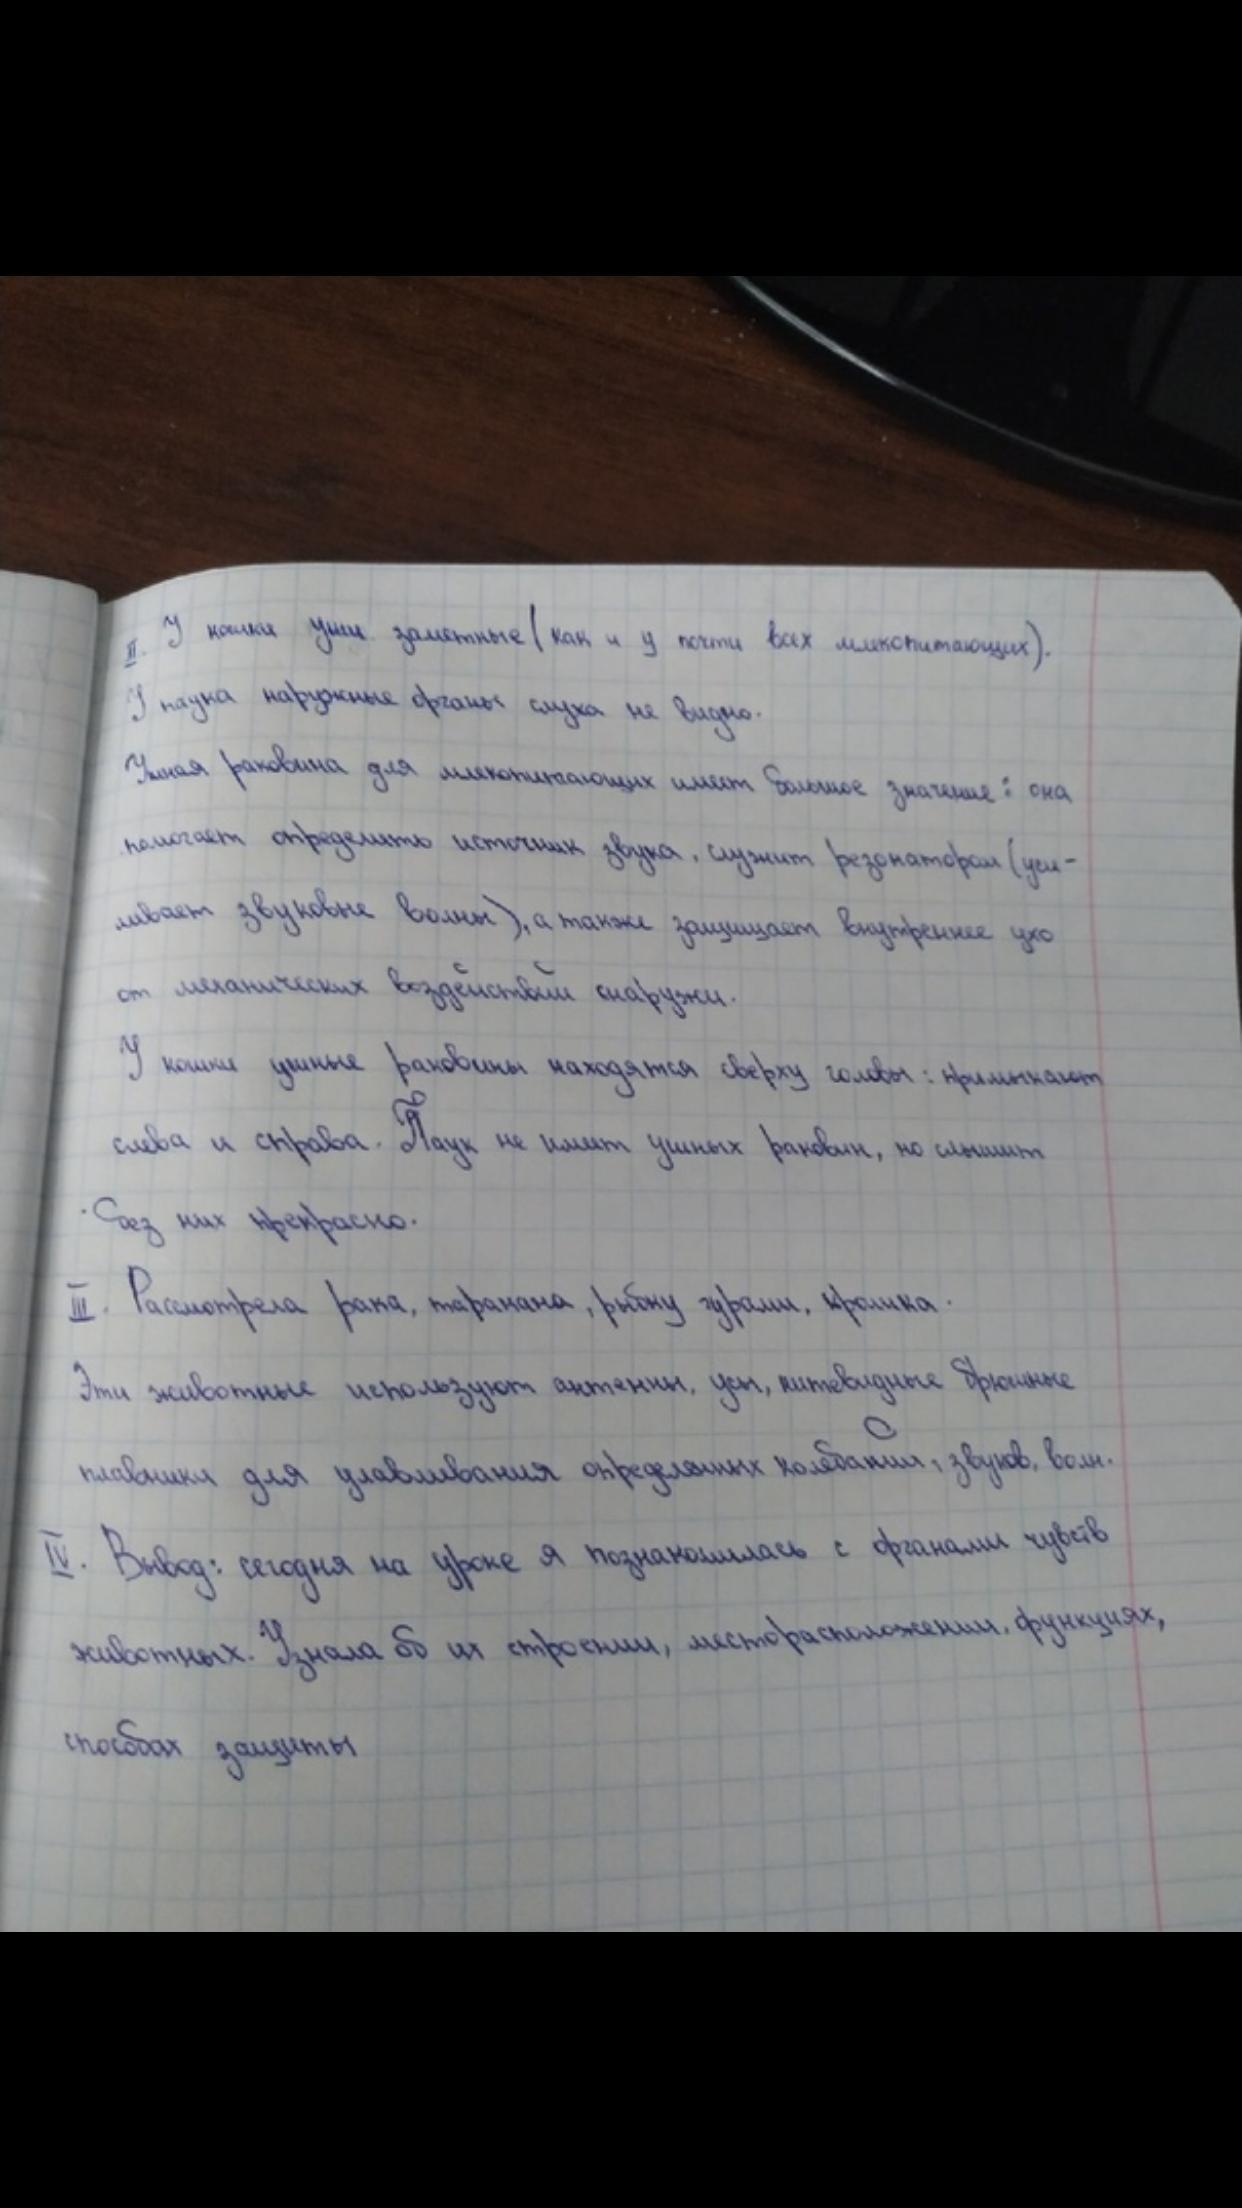 II. У кошки уши заметные (как и у почти всех млекопитающих).
У паука наружные органы слуха не видно.
Ушная раковина для млекопитающих имеет большое значение: она
помогает определить источник звука, служит резонатором (уси-
ливает звуковые волны), а также защищает внутреннее ухо
от механических воздействий снаружи.
У кошки ушные раковины находятся сверху головы: примыкают
слева и справа. Паук не имеет ушных раковин, но слышит
без них прекрасно.
III. Рассмотрела рака, таракана, рыбку гурами, кролика.
Эти животные используют антенны, усы, нитевидные брюшные
плавники для улавливания определенных колебаний, звуков, волн.
IV. Вывод: сегодня на уроке я познакомилась с органами чувств
животных. Узнала об их строении, месторасположении, функциях,
способах защиты